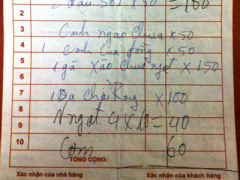 x 50 = 150
2
3 Canh ngao chua x 50
4 1 Canh Cua đồng x 50
5 1 gà xào chua ngọt x 150
6
7 1 Ba chỉ x 100
8 Ngọt 4 x 10 = 40
9
10 Cơm 60
TỔNG CỘNG:
Xác nhận của nhà hàng Xác nhận của khách hàng